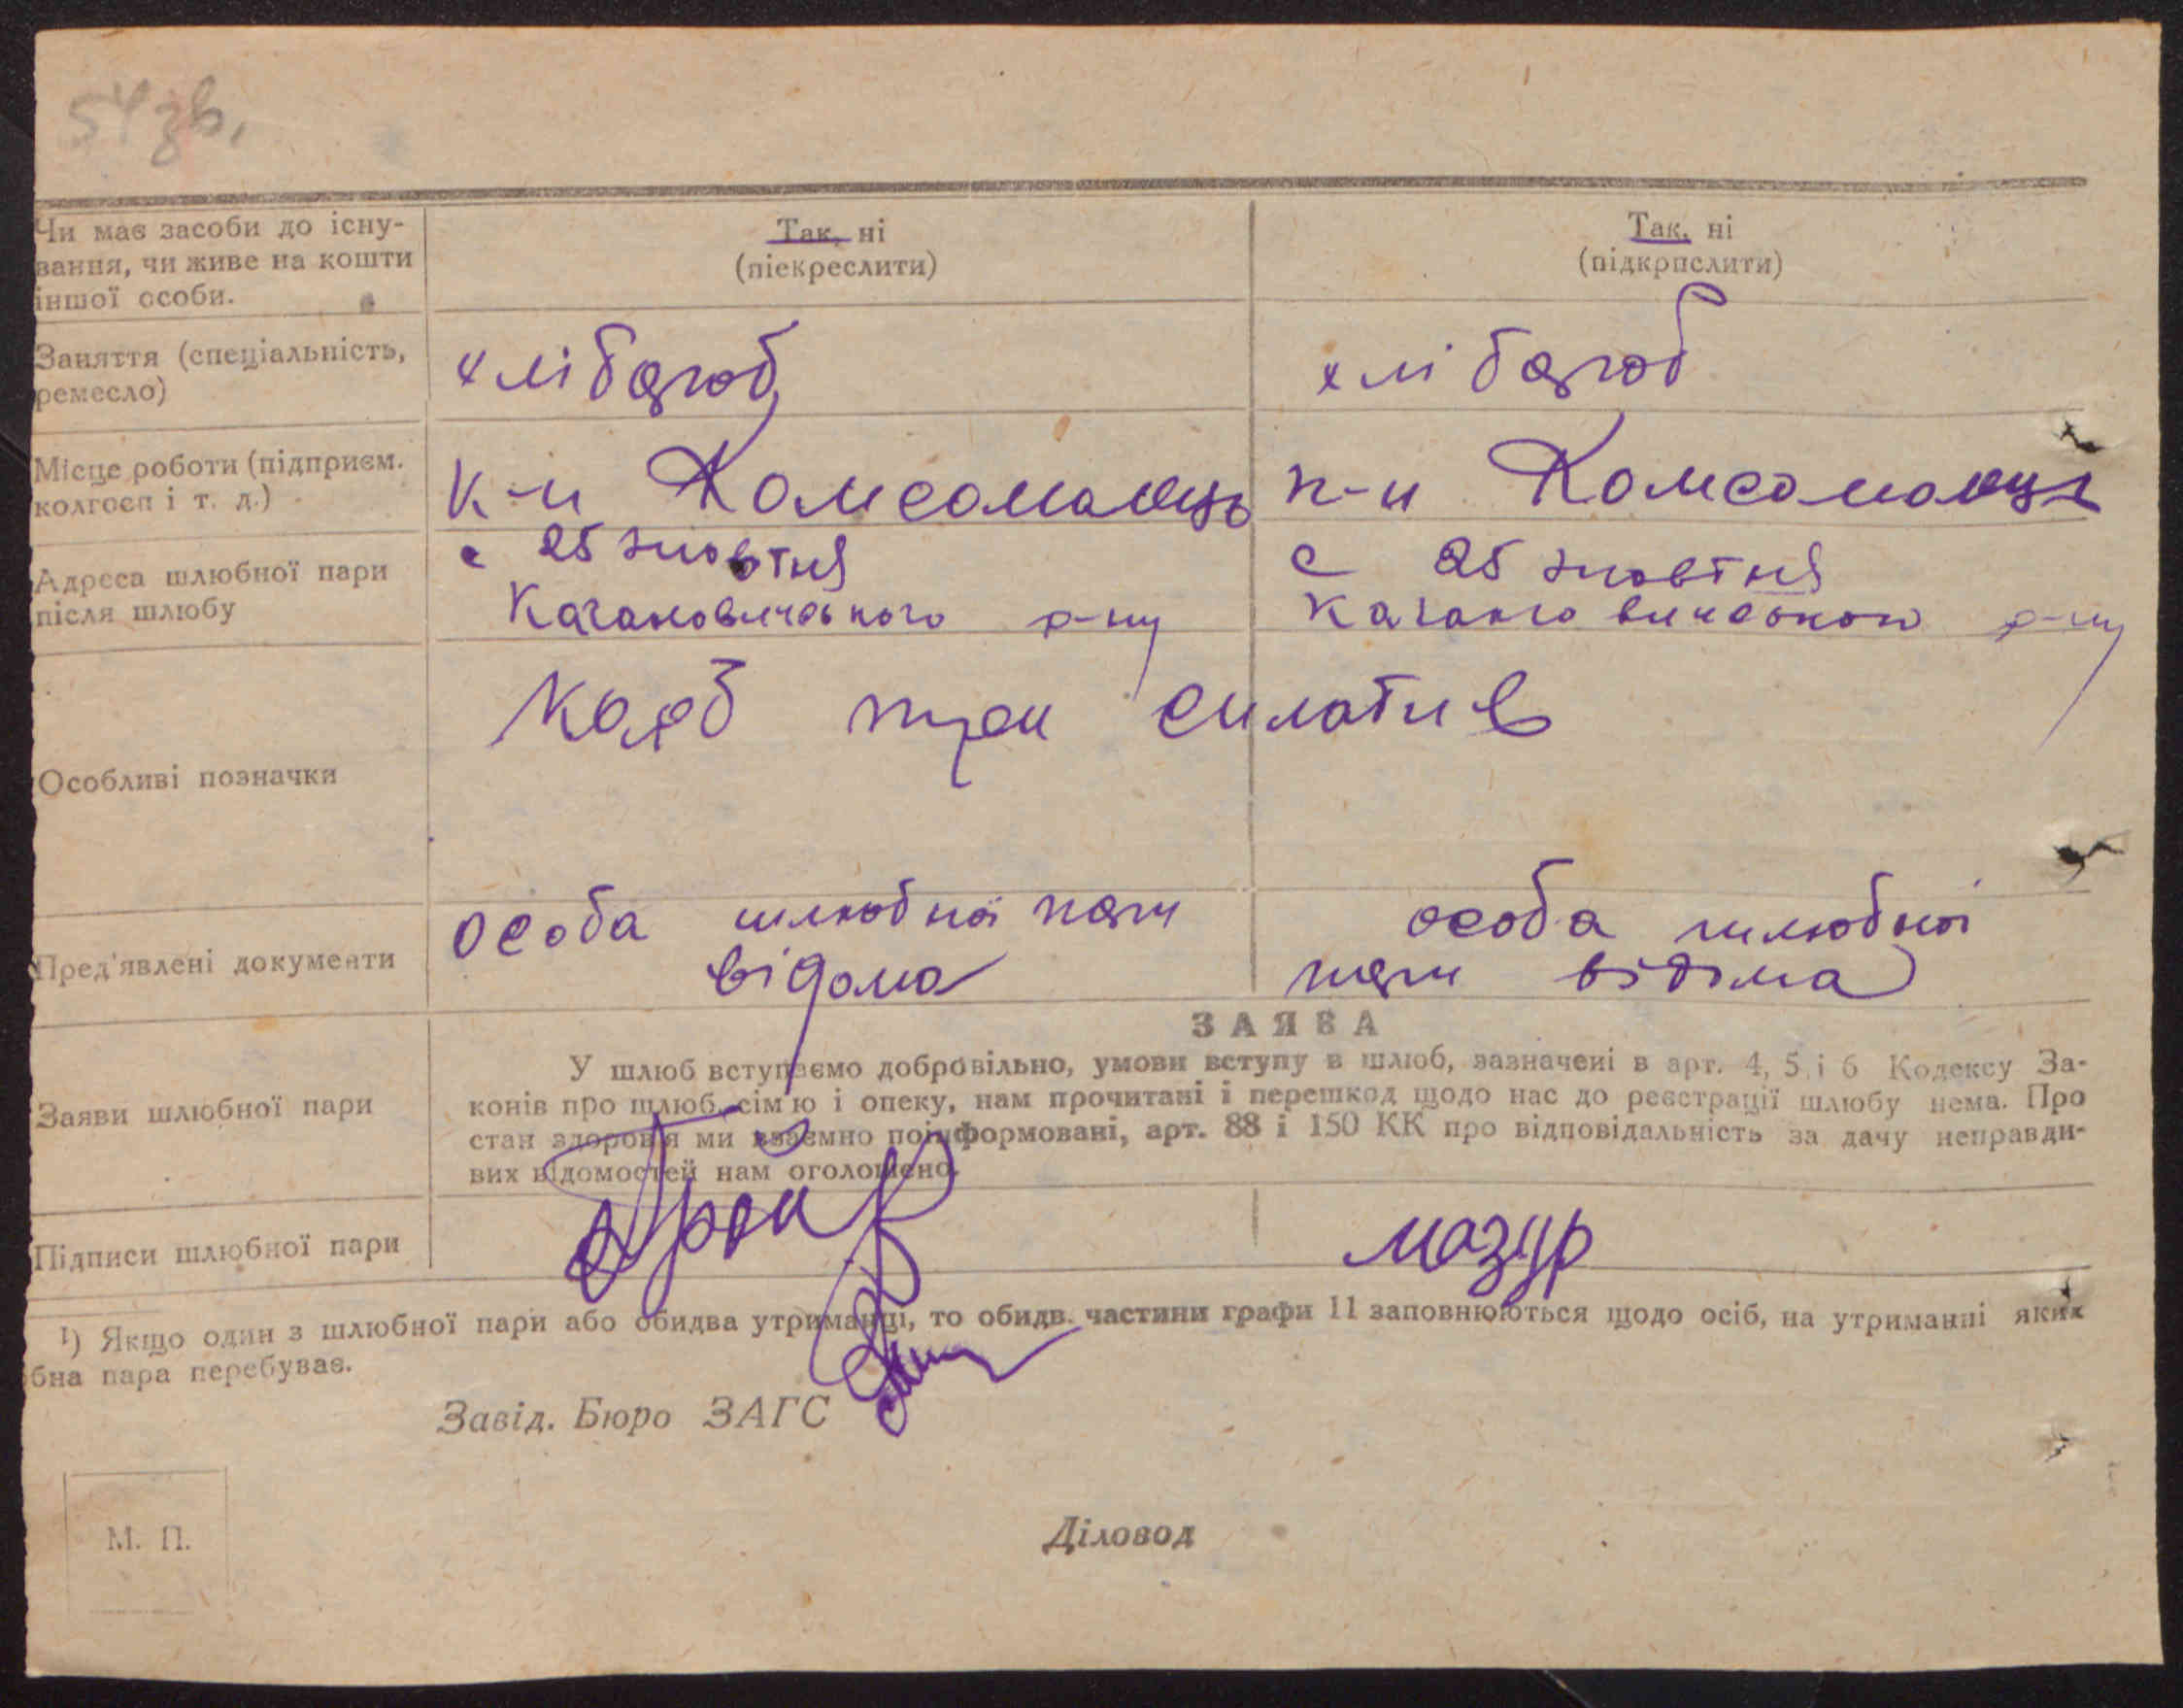 54зв.
Чи має засоби до існу-
вання, чи живе на кошти
іншої особи.
Так, ні
(піекреслити)
Так, ні
(підкрпслити)
Заняття (спеціальність,
ремесло)
хлібороб
хлібороб
Місце роботи (підприєм.
колгосп і т. д.)
к-п Комсомолець
к-п Комсомолець
Адреса шлюбної пари
після шлюбу
с 25 жовтня
Кагановичського р-ну
с 25 жовтня
Кагановичського р-ну
Особливі позначки
Пред'явлені документи
особа шлюбної пари
відома
особа шлюбної
пари відома
Заяви шлюбної пари
ЗАЯВА
У шлюб вступаємо добровільно, умови вступу в шлюб, зазначені в арт. 4, 5 і 6 Кодексу За-
конів про шлюб, сім'ю і опеку, нам прочитані і перешкод щодо нас до реєстрації шлюбу нема. Про
стан здоров'я ми взаємно поінформовані, арт. 88 і 150 КК про відповідальність за дачу неправди-
вих відомостей нам оголошено.
Підписи шлюбної пари
мазур
¹) Якщо один з шлюбної пари або обидва утриманці, то обидв. частини графи 11 заповнюються щодо осіб, на утриманні яких
бна пара перебуває.
Завід. Бюро ЗАГС
М. П.
Діловод